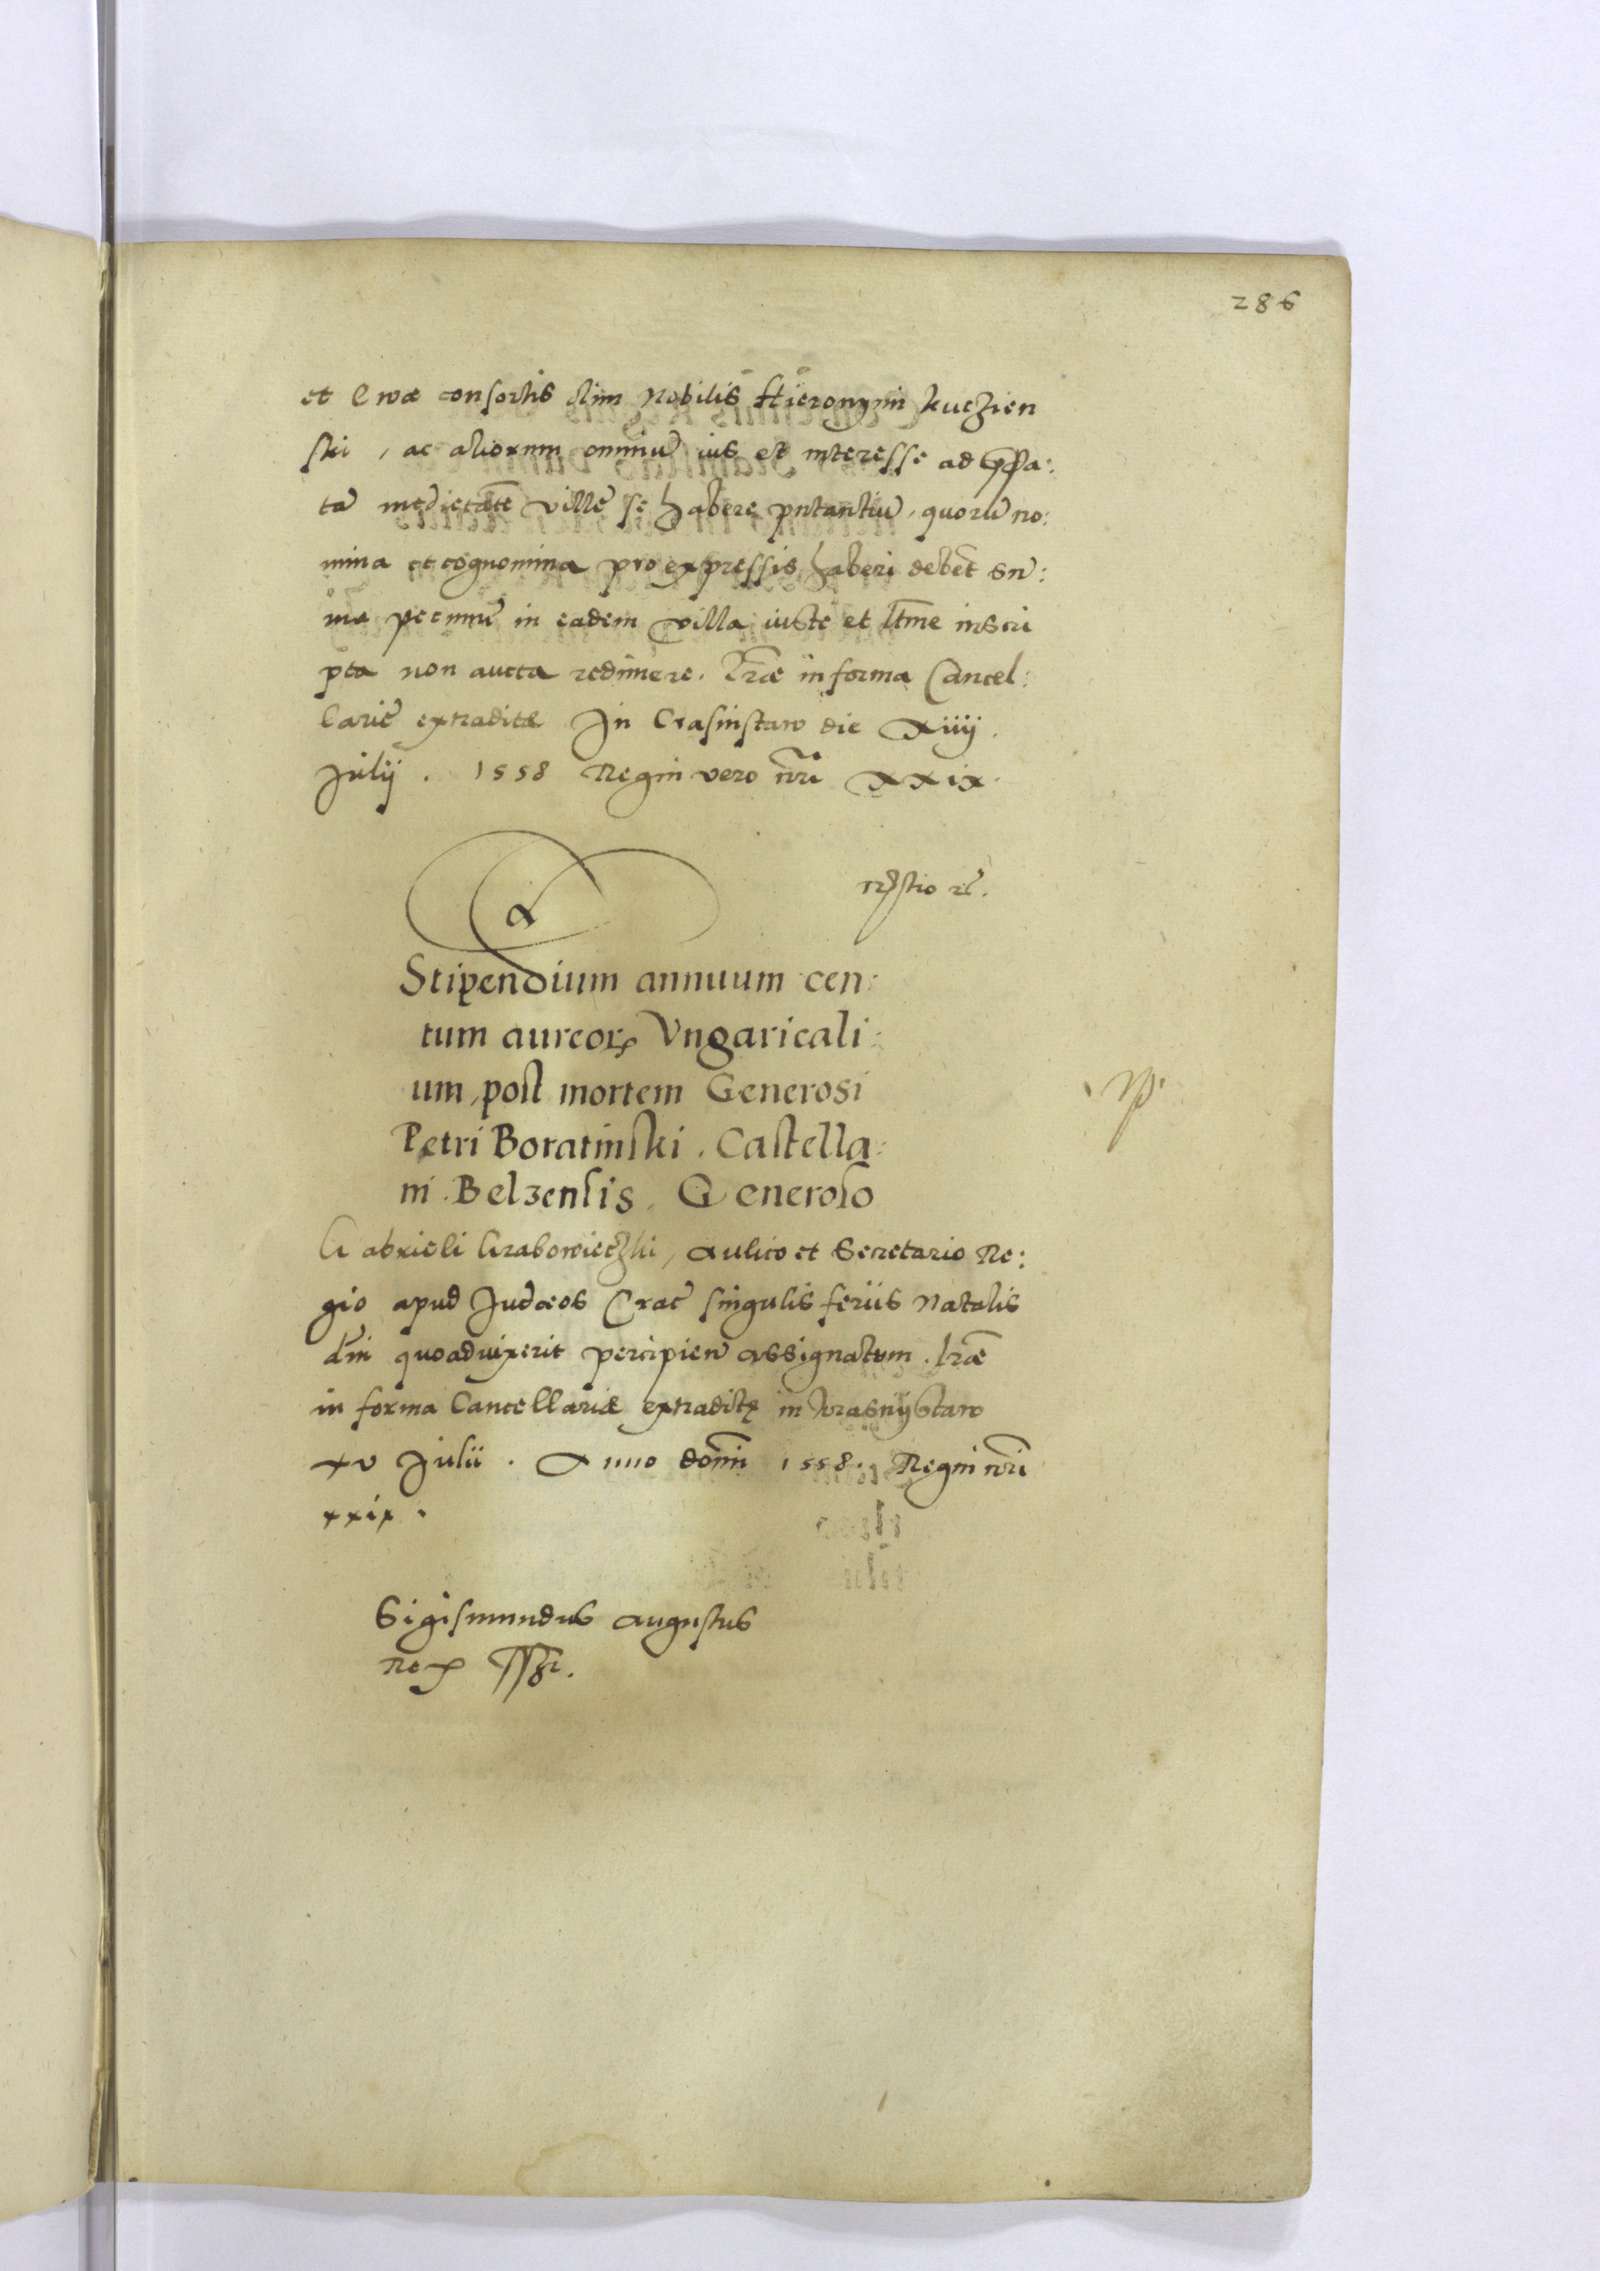 286
et Ewæ consortis olim Nobilis Hieronymi kuczien
ski, ac aliorum omniũ ius et interesse ad
tã medietatẽ villæ se habere pntantiũ, quorũ no:
mina et cognomina pro expressis haberi debẽt
ma pecuniæ in eadem villa iuste et ltĩme inscri
pta non aucta redimere. Lræ in forma Cancel:
lariæ extraditæ In Crasinstaw die Xiiij.
Julij. 1558 Regni vero nri XXix.
Stipendium annuum cen:
tum aureorꝝ Vngaricali:
um, post mortem Generosi
Petri Boratinski. Castella:
ni. Belzensis. Generoso
Gabrieli Grabowieczki, Aulico et Secretario Re:
gio apud Judæos Crac singulis feriis Natalis
dni quoadvixerit percipien assignatum. Lræ
in forma Cancellariæ extraditę in krasnijstaw
xv Julii. Anno domi 1558. Regni nri
xxix.
Sigismundus augustus
Rex